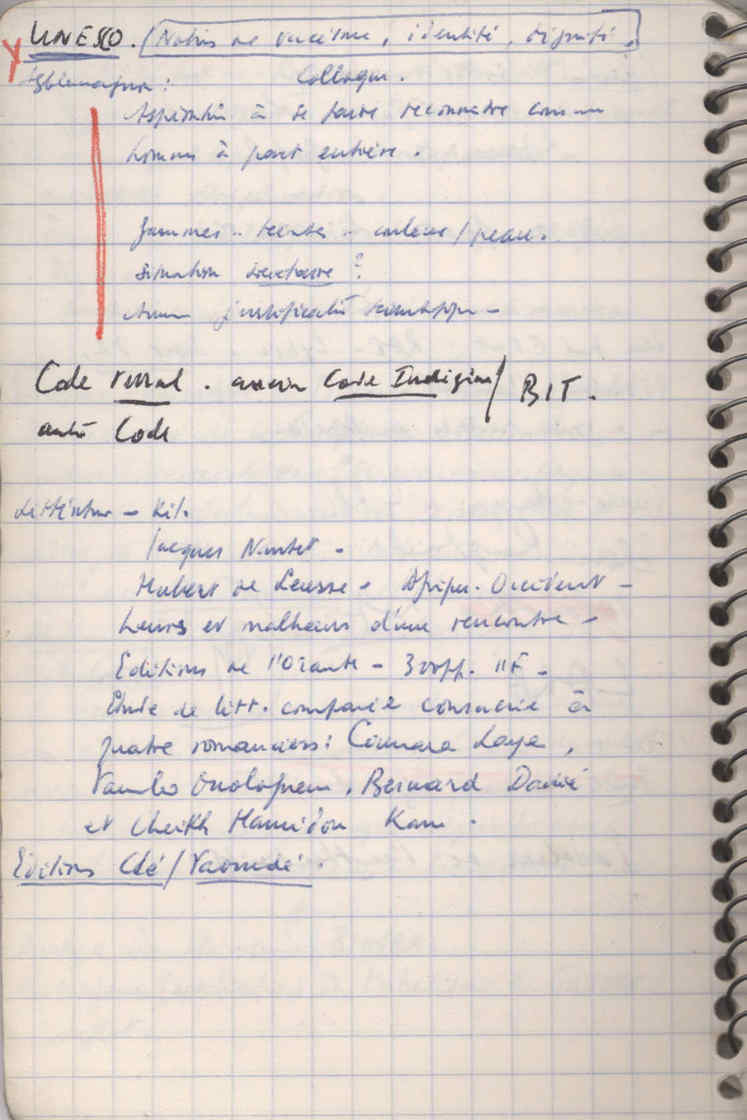 UNESCO. Notions de racisme, identité, dignité.
Colloque.
Aspiration à se faire reconnaître comme
hommes à part entière.
femmes - - couleur / peau.
situation ?
Aucune justification scientifique -
Code rural. ancien Code Indigénat / BIT.
Code
Littérature - Rel.
Jacques Nantet -
Hubert de Leusse - Afrique. Occident -
heurs et malheurs d'une rencontre -
Editions de l'Orante - 300pp. 11F -
Etude de litt. comparée consacrée à
quatre romanciers: Camara Laye,
Yambo Ouologuem, Bernard Dadié
et Cheikh Hamidou Kane.
Editions Clé / Yaoundé.